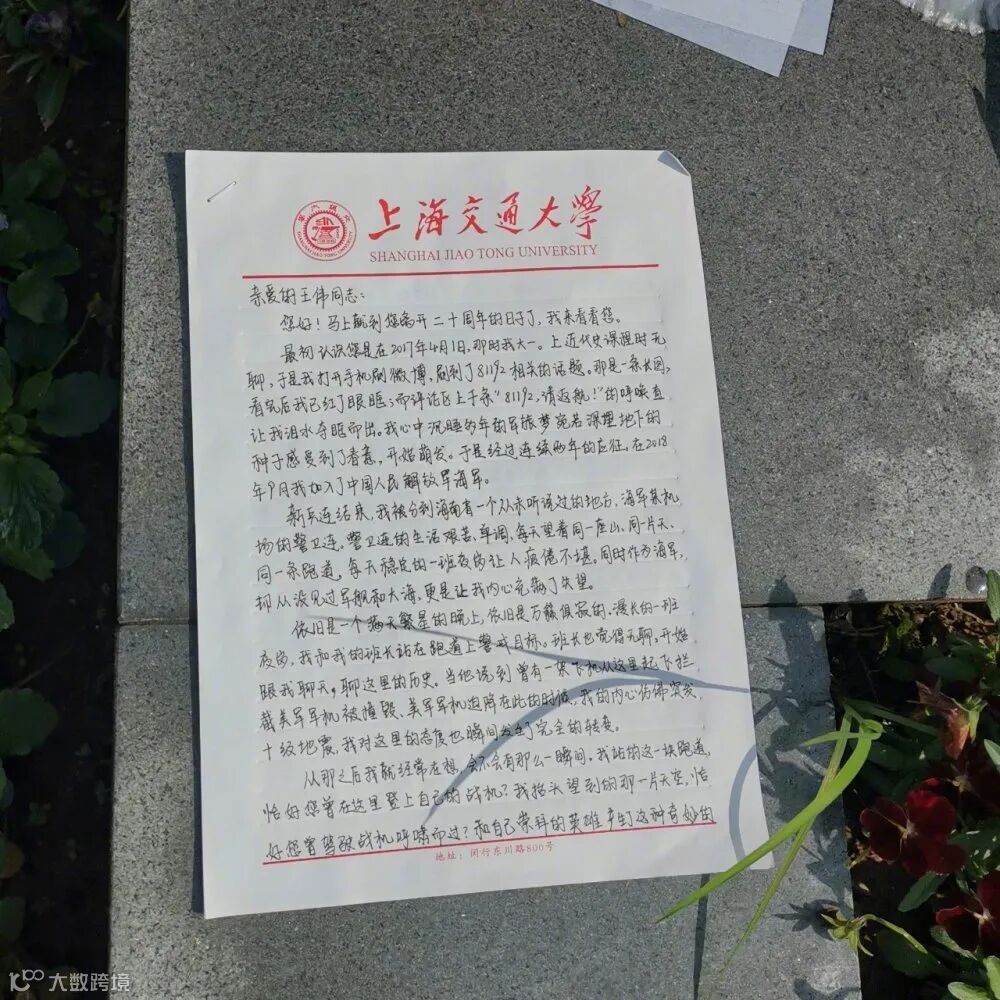 上海交通大學
SHANGHAI JIAO TONG UNIVERSITY
SHANGHAI JIAO TONG UNIVERSITY
亲爱的王伟同志：
您好！马上就到您离开二十周年的日子了，我来看看您。
最初认识您是在2017年4月1日，那时我大一。上近代史课闲时无
聊，于是我打开手机刷微博，刷到了81192相关的话题。那是一条长图，
看完后我已红了眼眶；而评论区上千条“81192，请返航！”的呼唤直
让我泪水夺眶而出。我心中沉睡多年的军旅梦宛若深埋地下的
种子感受到了春意，开始萌发。于是经过连续两年的应征，在2018
年9月我加入了中国人民解放军海军。
新兵连结束，我被分到海南省一个从未听说过的地方，海军某机
场的警卫连。警卫连的生活艰苦、单调，每天望着同一座山、同一片天、
同一条跑道，每天稳定的一班夜岗让人疲倦不堪。同时作为海军，
却从没见过军舰和大海，更是让我内心充满了失望。
依旧是一个满天繁星的晚上，依旧是万籁俱寂的、漫长的一班
夜岗，我和我的班长站在跑道上警戒目标。班长也觉得无聊，开始
跟我聊天，聊这里的历史。当他说到曾有一架飞机从这里起飞拦
截美军军机被撞毁、美军军机迫降在此的时候，我的内心仿佛突发
十级地震，我对这里的态度也瞬间发生了完全的转变。
从那之后我就经常在想，会不会有那么一瞬间，我站的这一块跑道，
恰好您曾在这里登上自己的战机？我抬头望到的那一片天空，恰
好您曾驾驶战机呼啸而过？和自己崇拜的英雄产生这种奇妙的
地址：闵行东川路800号
大数跨境